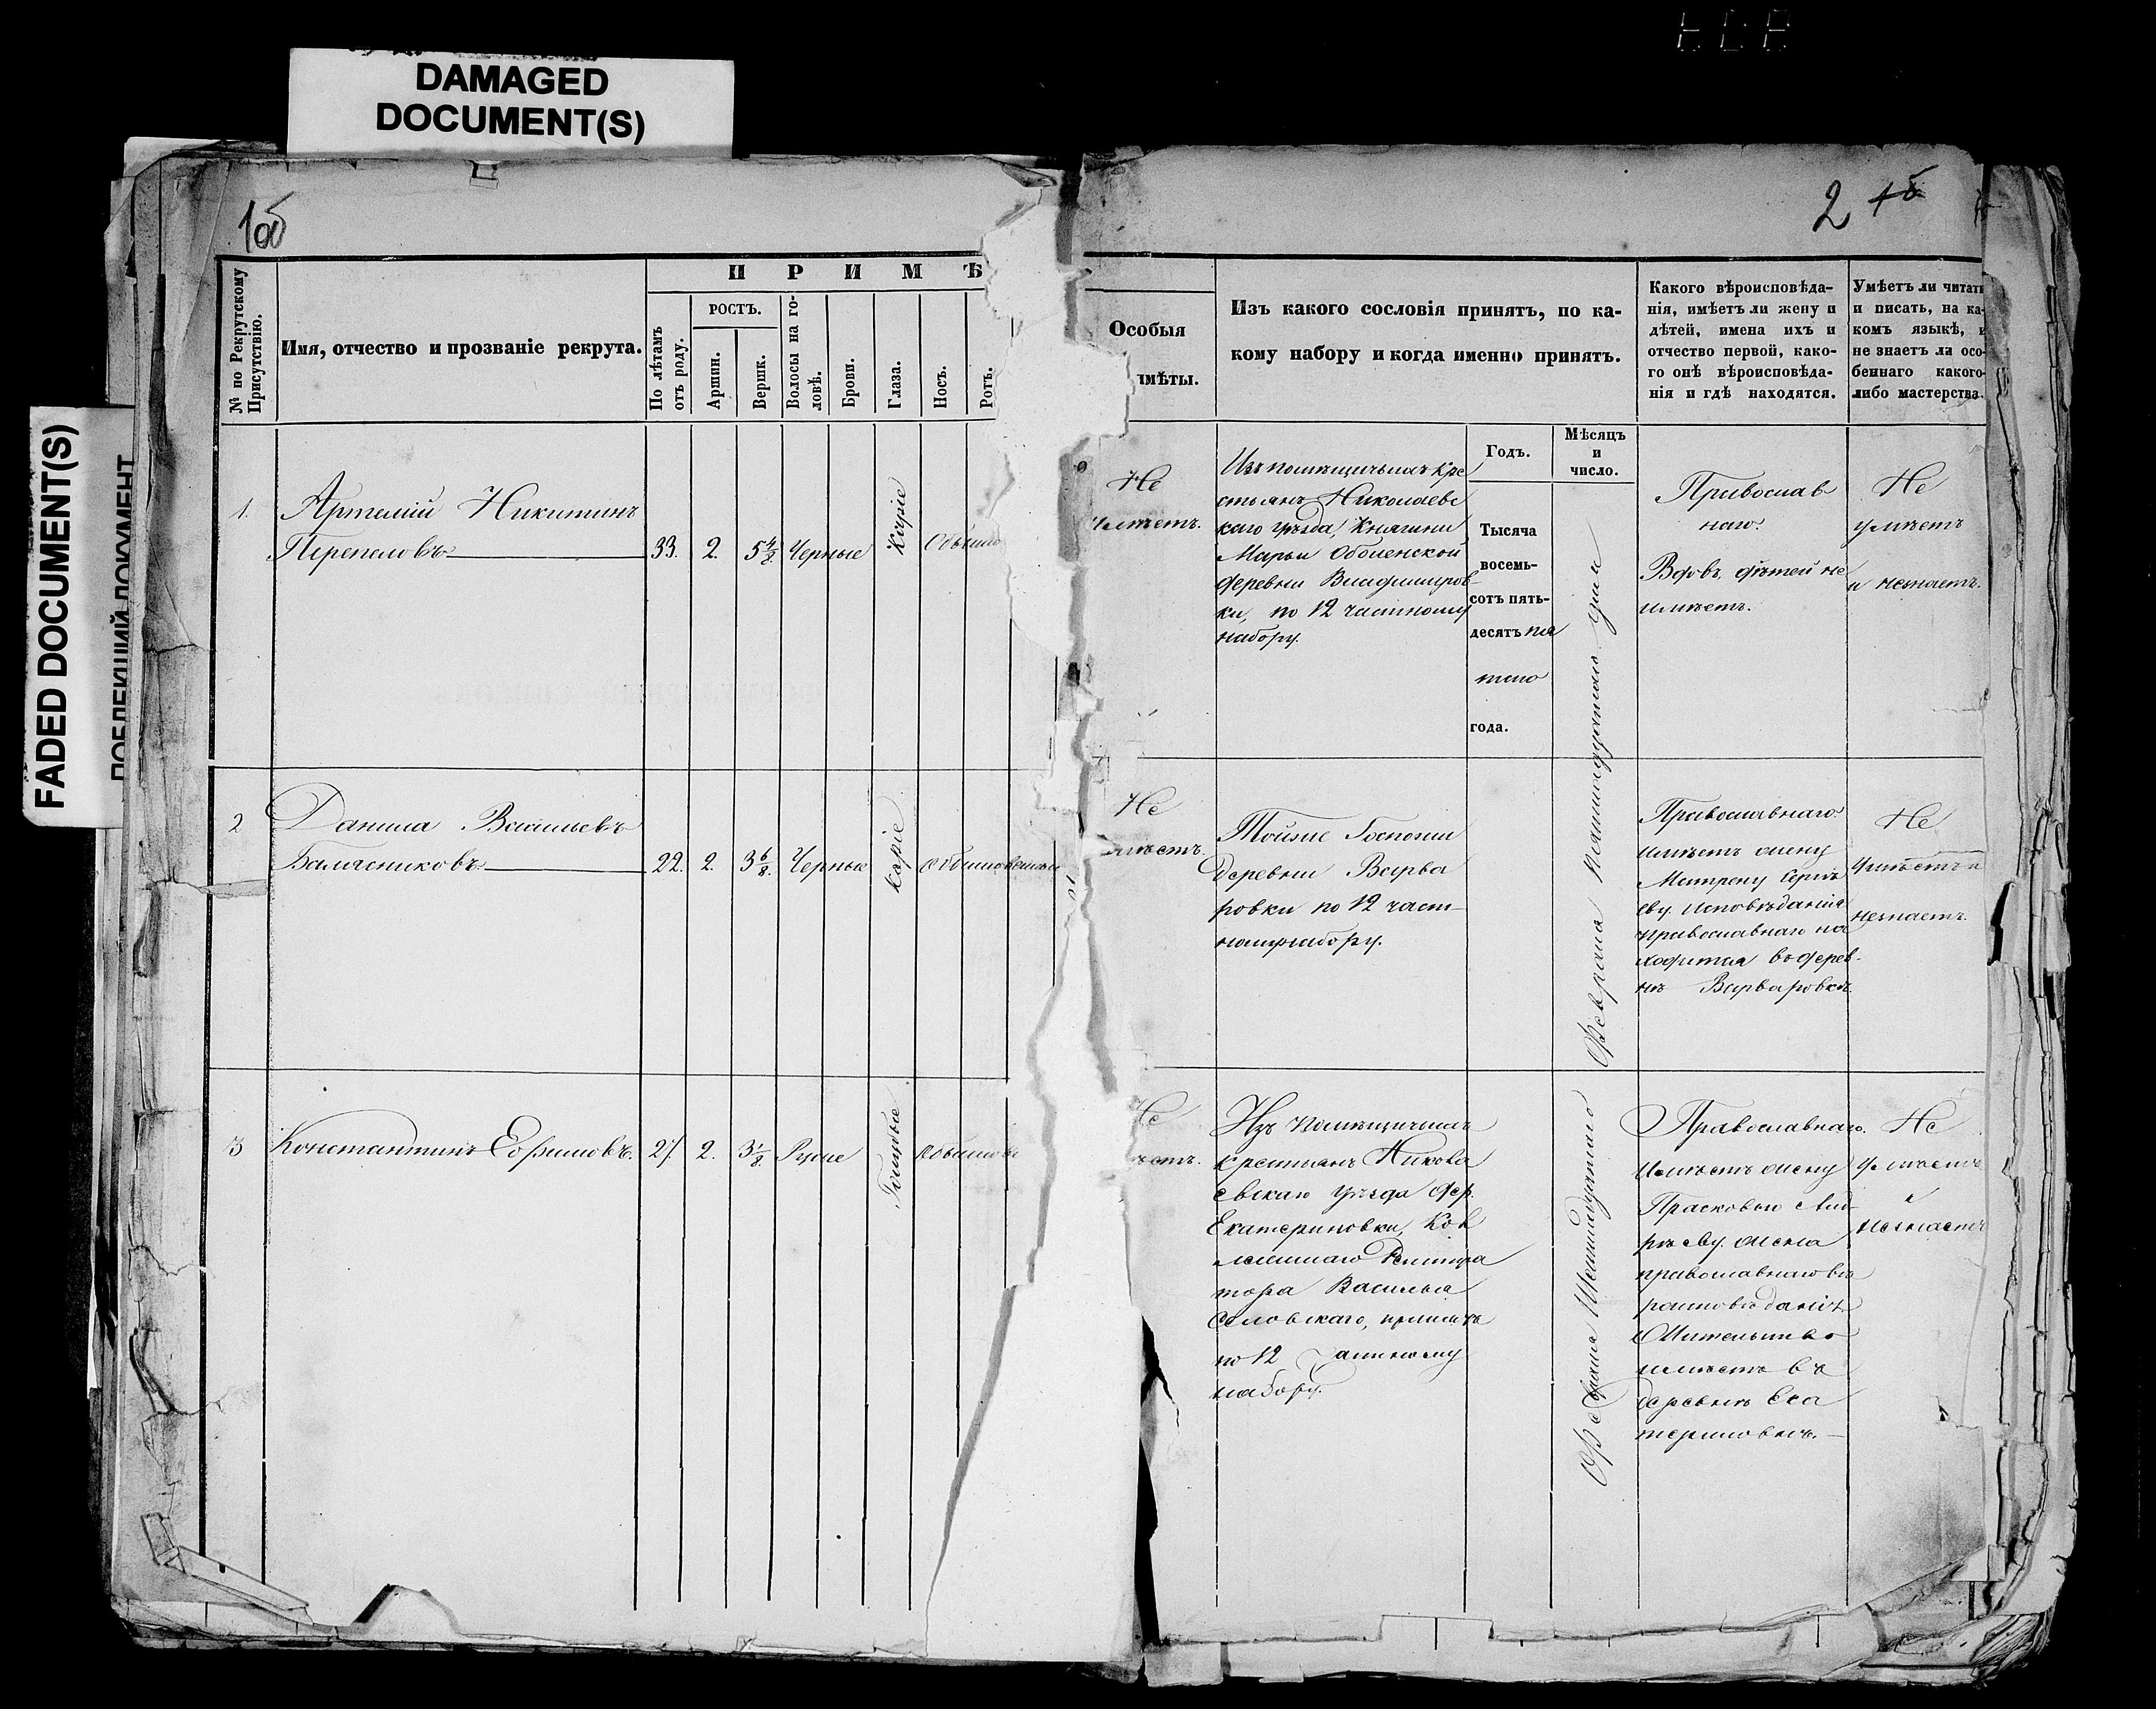 DAMAGED
DOCUMENT(S)
FADED DOCUMENT(S)
1об
2
№ по Рекрутскому
Присутствію.
Имя, отчество и прозваніе рекрута.
П Р И М Ѣ
По лѣтамъ
отъ роду.
РОСТЪ.
Аршин.
Вершк.
Волосы на го-
ловѣ.
Брови.
Глаза.
Носъ.
Ротъ.
Особыя
имѣты.
Изъ какого сословія принятъ, по ка-
кому набору и когда именно принятъ.
Какого вѣроисповѣда-
нія, имѣетъ ли жену и
дѣтей, имена ихъ и
отчество первой, како-
го онѣ вѣроисповѣда-
нія и гдѣ находятся.
Умѣетъ ли читать
и писать, на ка-
комъ языкѣ, и
не знаетъ ли осо-
беннаго какого-
либо мастерства.
Годъ.
Мѣсяцъ
и
число.
1.
Артемій Никитинъ
Перепеловъ
33.
2.
5 4/8
Черные
Каріе
Обыкно
Не
имѣетъ.
Изъ помѣщичьихъ кре
стьянъ Николаевс
каго уѣзда, Княгини
Марьи Оболенской
деревни Владимиров-
ки, по 12 частному
набору.
Тысяча
восемь-
сотъ пять-
десятъ пя
таго
года.
Февраля
Православ
наго.
Вдовъ, дѣтей не
имѣетъ.
Не
умѣетъ
и незнаетъ.
2
Данила Васильевъ
22.
2.
3 6/8.
Черные
Каріе
Обыкновенный
Не
имѣетъ.
Тойже Госпожи
Деревни Варва
ровки по 12 част-
ному набору.
Православнаго
имѣетъ жену
Матрену Сергѣ
еву. исповѣданія
православнаго на
ходится въ дерев-
нѣ Варваровкѣ.
Не
умѣетъ и
незнаетъ.
3
Константинъ Ефимовъ.
27
2.
3 1/8.
Русые
Голубые
Обыкнове
Не
ѣетъ.
Изъ помѣщичьихъ
крестьянъ Никола
евскаго уѣзда дер.
Екатериновки, Кол
лежскаго Регистра
тора Василья
принятъ
по 12 частному
набору.
Февраля
Православнаго.
имѣетъ жену
Прасковью
рѣеву. жена
православнаго вѣ
роисповѣданія
Жительство
имѣетъ въ
деревнѣ Ека
териновкѣ.
Не
умѣетъ
и
незнаетъ